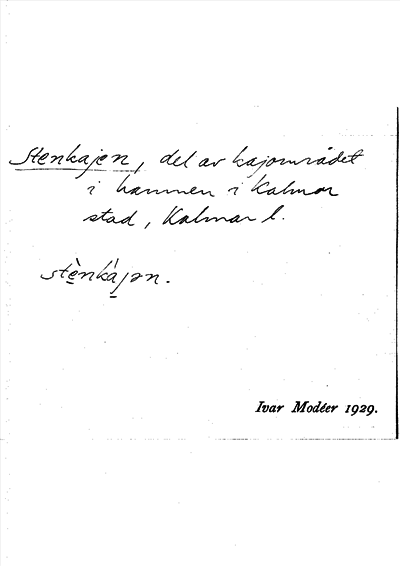 Stenkajen, del av kajområdet
i hamnen i Kalmar
stad, Kalmar l.
stè̱nká̱jən.
Ivar Modéer 1929.